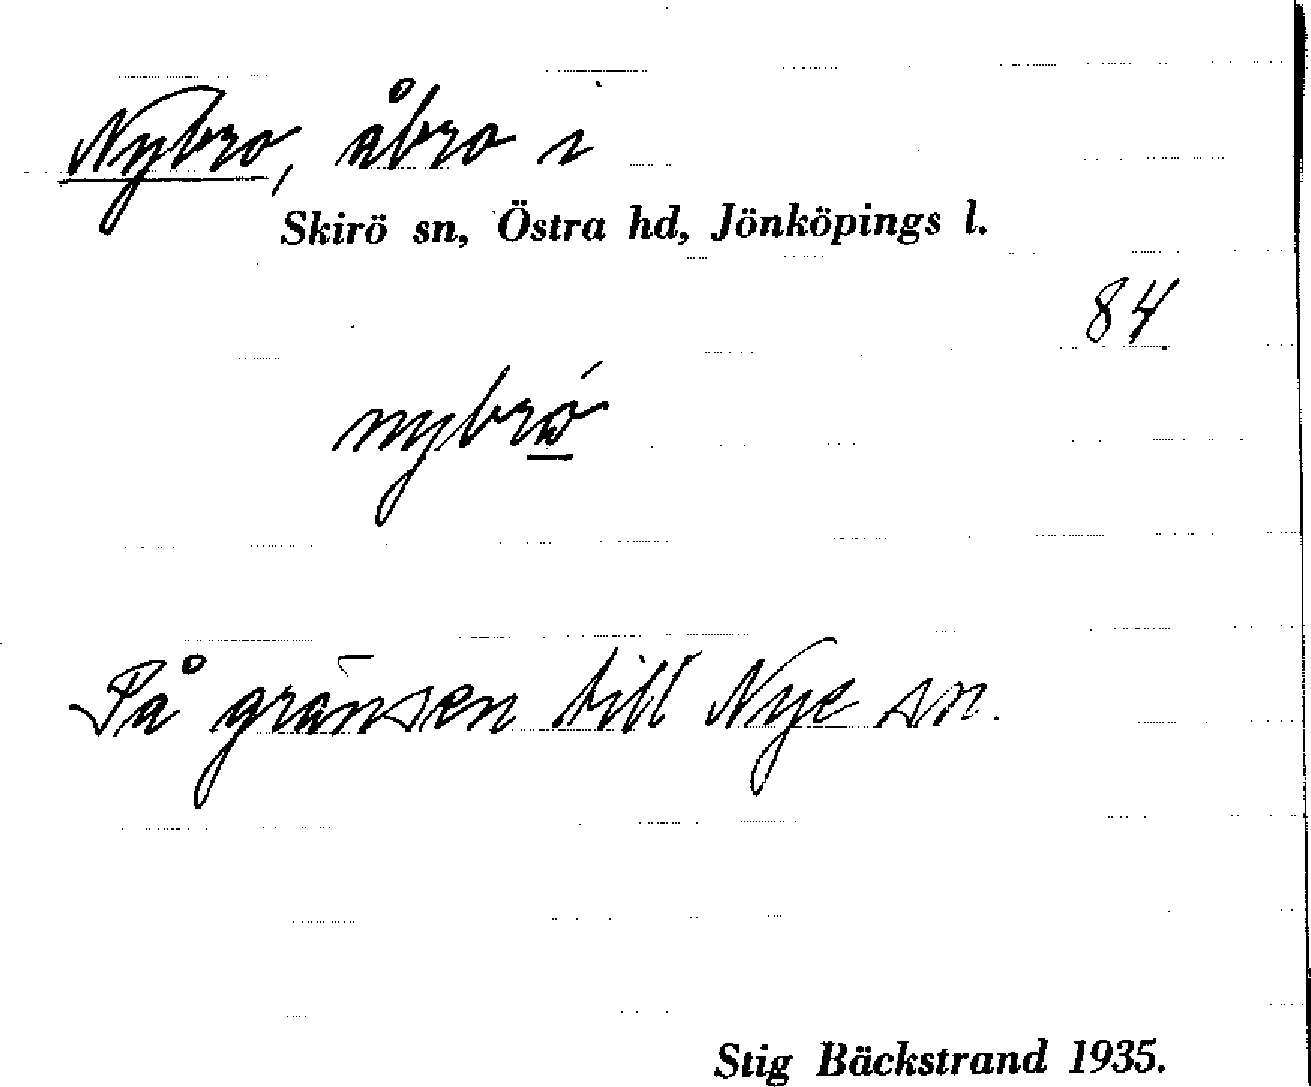 Nybro, åbro i
Skirö sn, Östra hd, Jönköpings l.
84
nybrώ
På gränsen till Nye sn.
Stig Bäckstrand 1935.